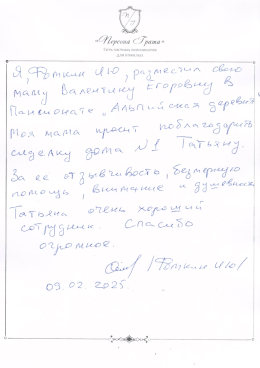 «Персона Грата»
Я, Фомкин И.Ю, разместил свою
маму Валентину Егоровну в
Пансионате „Альпийская деревня“
Моя мама просит поблагодарить
сиделку дома №1 Татьяну.
За ее отзывчивость, безмерную
помощь, внимание и душевность
Татьяна очень хороший
сотрудник. Спасибо
огромное.
/Фомкин И.Ю/
09.02.2025.